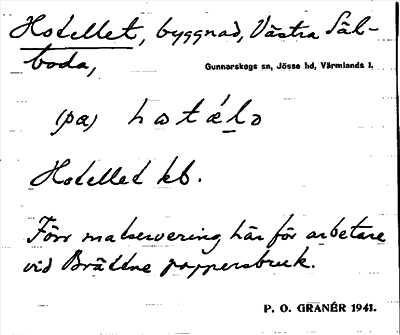 Hotellet, byggnad, Västra Säl-
boda,
Gunnarskogs sn, Jösse hd, Värmlands l.
(pa) hotälo
Hotellet kb.
Förr matservering här för arbetare
vid Brättne pappersbruk.
P. O. GRANÉR 1941.